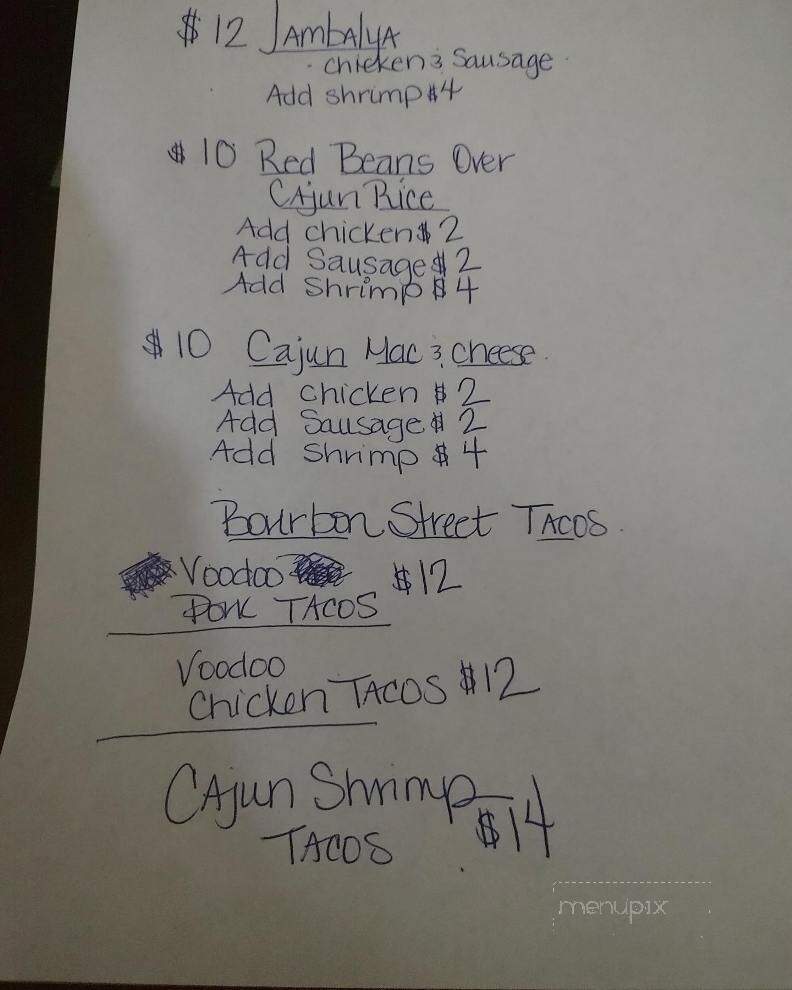 $12 JAmbAlyA
· chicken & Sausage
Add shrimp $4
$10 Red Beans Over
CAjun Rice
Add chicken $2
Add Sausage $2
Add Shrimp $4
$10 Cajun Mac & cheese.
Add chicken $2
Add Sausage $2
Add Shrimp $4
Bourbon Street TACOS.
Voodoo $12
Pork TACOS
Voodoo
Chicken TACOS $12
CAjun Shrimp
$14
TACOS
menupix